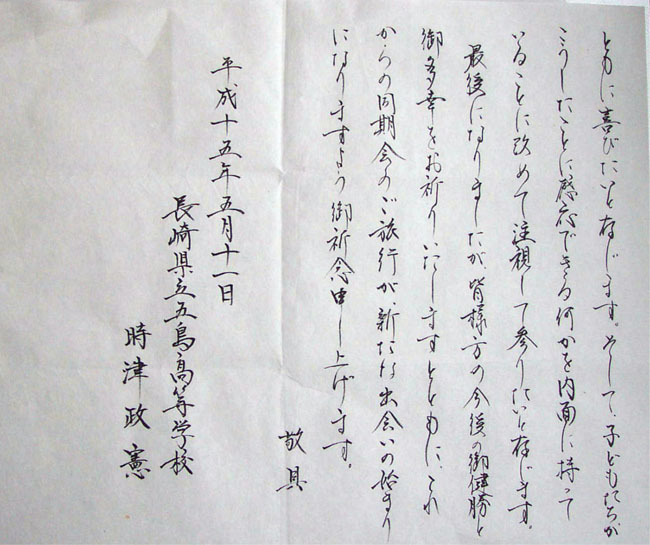 ともに喜びたいと存じます。そして、子どもたちが
こうしたことに感応できる何かを内面に持って
いることに改めて注視して参りたいと存じます。
最後になりましたが、皆様方の今後の御健勝と
御多幸をお祈りいたしますとともに、これ
からの同期会のご旅行が、新たな出会いの始まり
になりますよう御祈念申し上げます。
敬具
平成十五年五月十一日
長崎県立五島高等学校
時津政憲